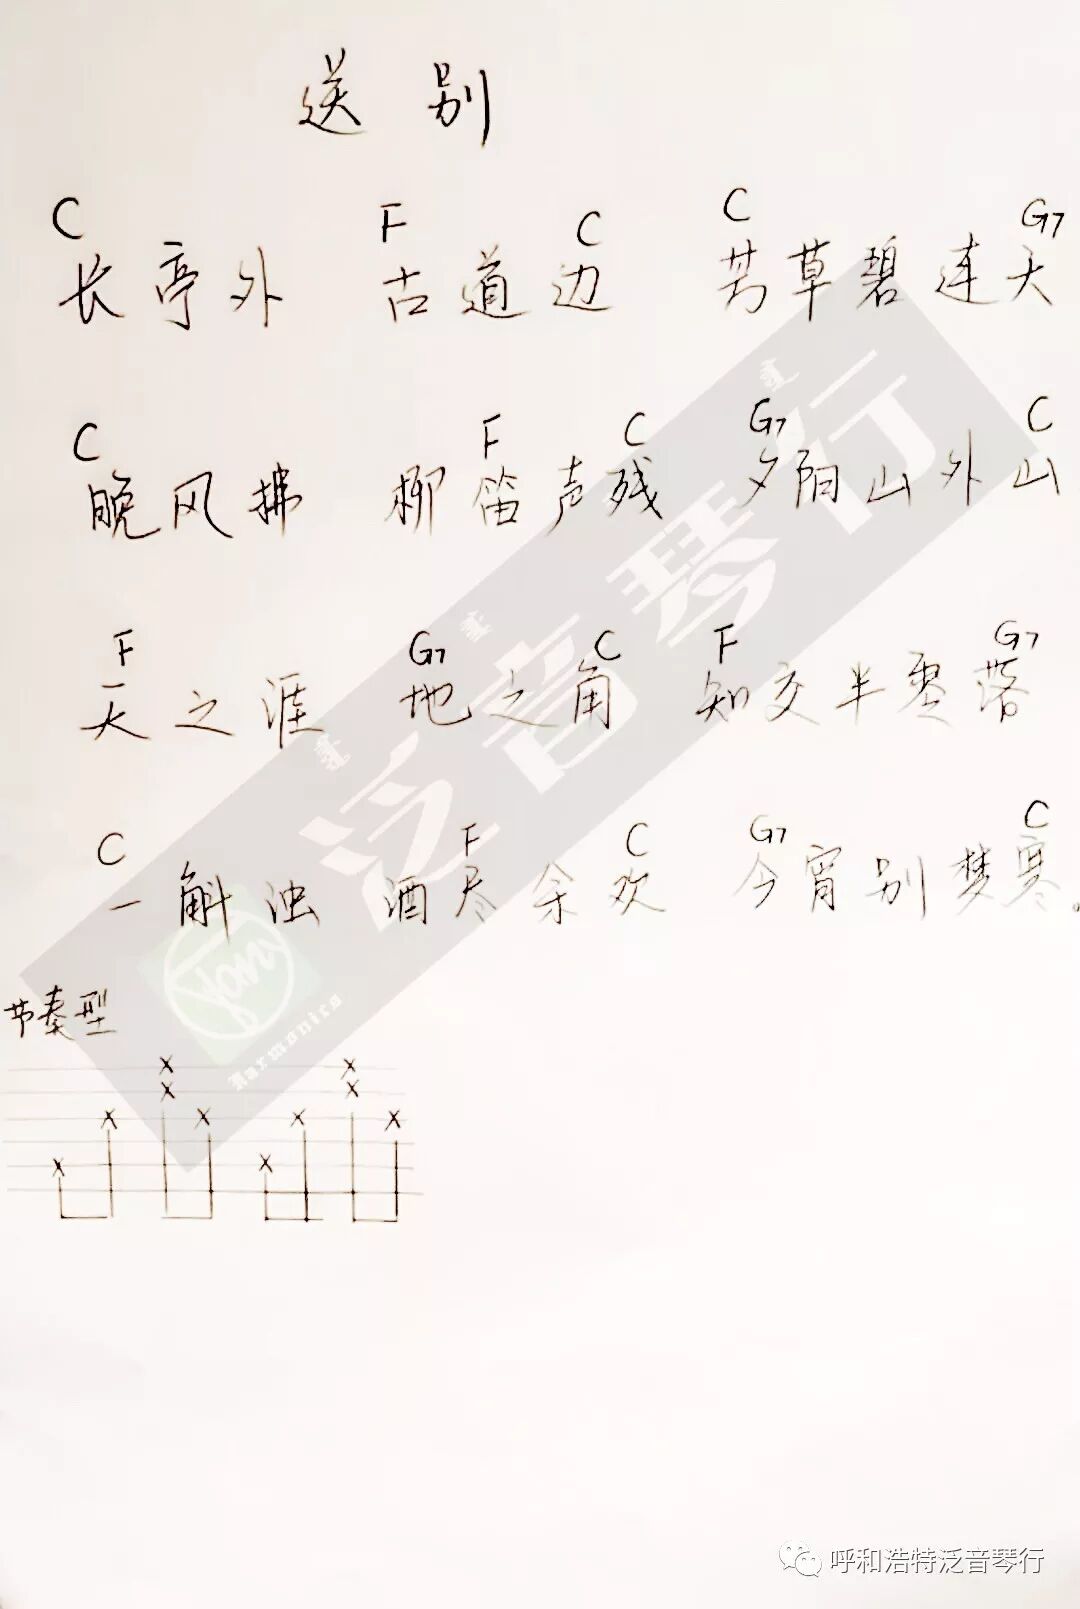 送别
C F C C G7
长亭外 古道边 芳草碧连天
C F C G7 C
晚风拂 柳笛声残 夕阳山外山
F G7 C F G7
天之涯 地之角 知交半零落
C F C G7 C
一斛浊 酒尽余欢 今宵别梦寒。
节奏型
泛音琴行
Harmonics
呼和浩特泛音琴行